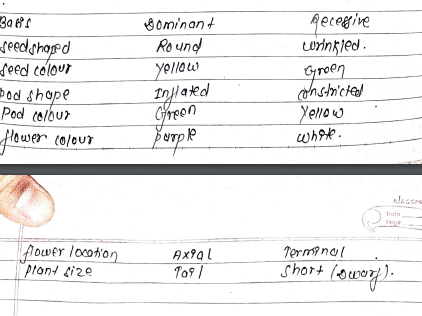 Basis Dominant Recessive
seedshaped Round wrinkled.
seed colour Yellow Green
Pod shape Inflated constricted
Pod colour Green Yellow
flower colour purple white.
classmate
Date
Page
flower location Axial Terminal
Plant size Tall Short (Dwarf).